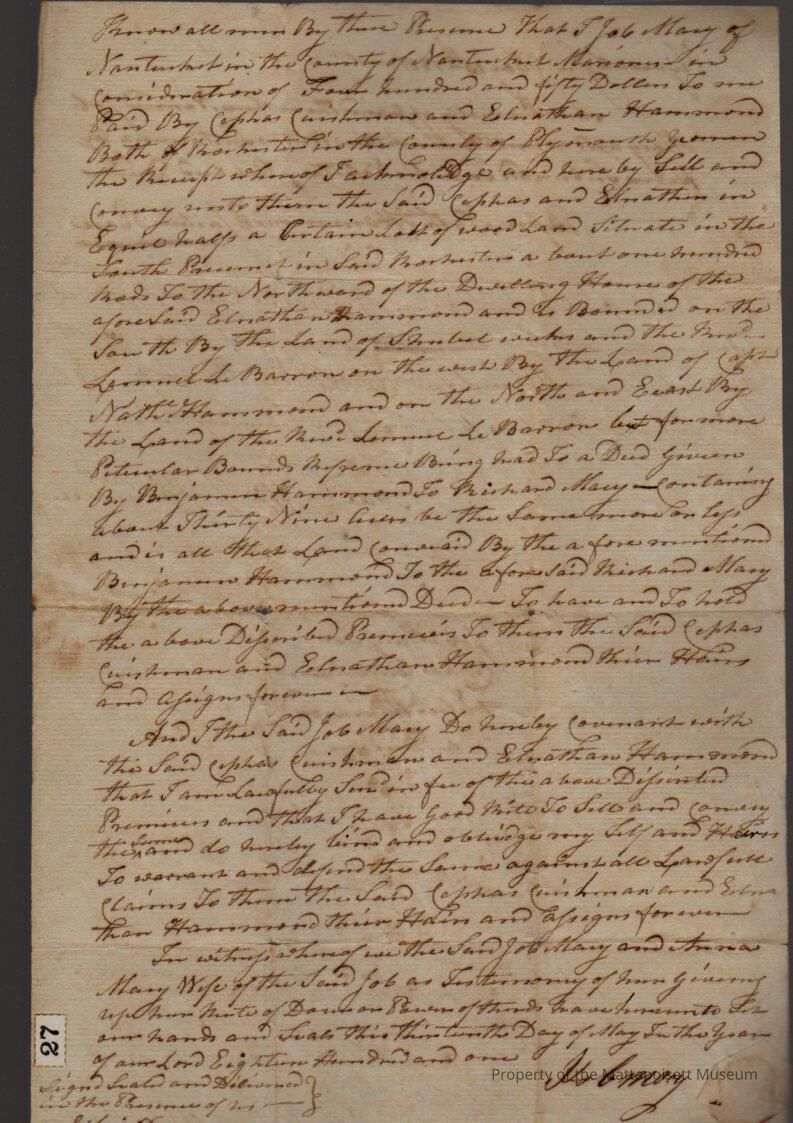 Know all men By these Presence That I Job Mary of
Nantucket in the County of Nantucket Marioner in
Consideration of Four hundred and fifty Dollers To me
Paid By Cephas Cushman and Elnathan Hammond
Both of Rochester in the County of Plymouth Yeomen
the Receipt whereof I acknoledge and hereby Sell and
Convey unto them the Said Cephas and Elnathan in
Equel halfs a Certain Lott of wood Land Situate in the
South Precinct in Said Rochester a bout one hundred
Rods To the Northward of the Dwelling House of the
afore Said Elnathan Hammond and is Bounded on the
South By the Land of Shubel weeks and the Revd
Lemuel Le Barron on the west By the Land of Capt
Nathl Hammond and on the North and Eeast By
the Land of the Revd Lemuel Le Barron but for more
Peticular Bounds Refrence Being had To a Deed Given
By Benjamin Hammond To Richard Mary Containing
about Thirty Nine Acers be the Same more or less
and is all that Land Convaid By the a fore mentioned
Benjamin Hammond To the afore Said Richard Mary
By the above mentioned Deed To have and To hold
the a bove Discribed Premices To them the Said Cephas
Cushman and Elnathan Hammond thier Hairs
and assigns for ever
And I the Said Job Mary Do hereby Covenant with
the Said Cephas Cushman and Elnathan Hammond
that I am Lawfully Seasd in fee of the above Discribed
Premices and that I have Good Rite To Sell and Convey
the Same and do hereby bind and obledge my Self and Heirs
To warrant and defend the Same against all Lawfull
Claims To them the Said Cephas Cushman and Elna
than Hammond thier Hairs and assigns for ever
In witness whereof we the Said Job Mary and Anna
Mary Wife of the Said Job as Testemony of her Giveing
up her Rite of Dower or Power of thirds have hereunto Set
our hands and Seals this thirteenth Day of May In the Year
of our Lord Eighteen Hundred and one
Signd Sealed and Delivered
in the Presence of us
Job Mary
27
Property of the Mattapoisett Museum